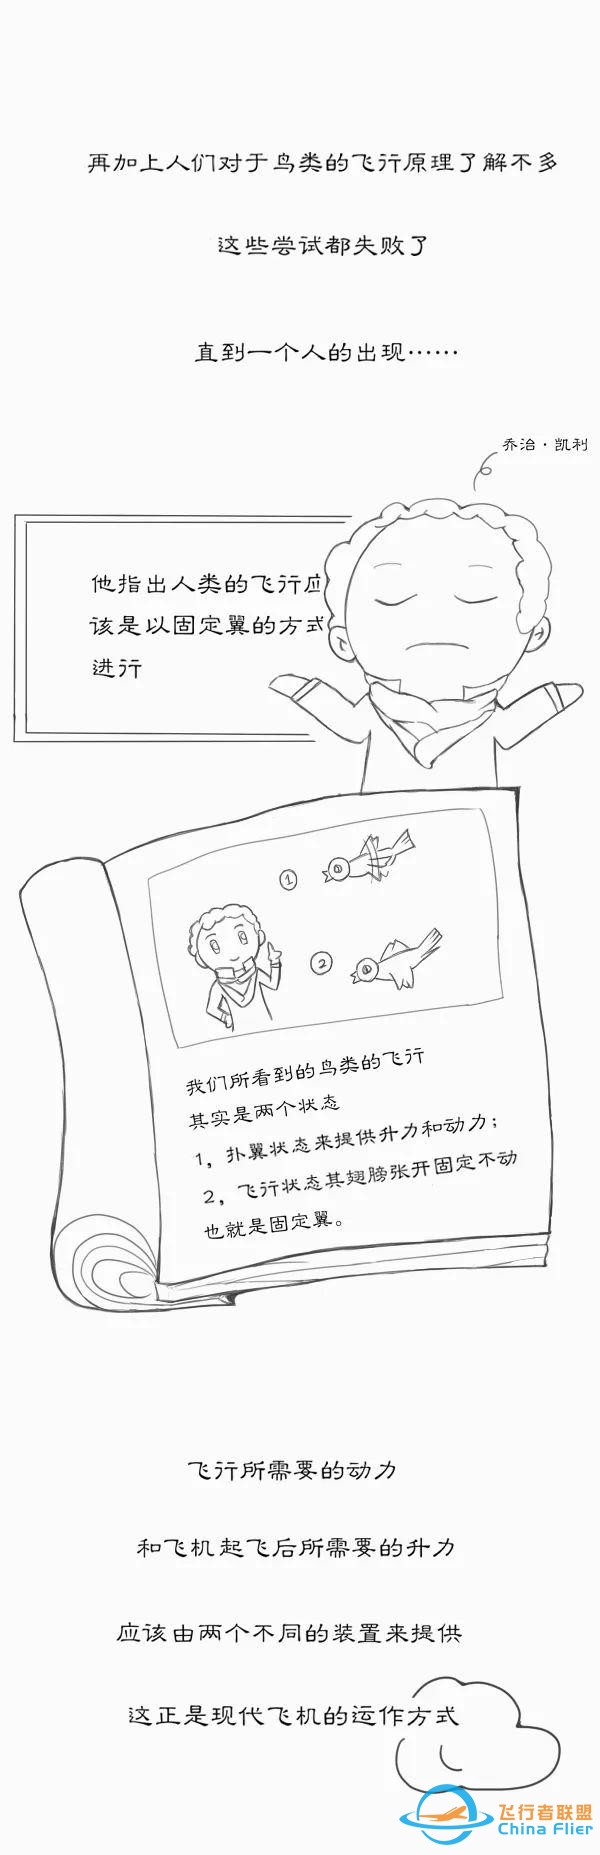 再加上人们对于鸟类的飞行原理了解不多
这些尝试都失败了
直到一个人的出现……
乔治·凯利
他指出人类的飞行应
该是以固定翼的方式
进行
1
2
我们所看到的鸟类的飞行
其实是两个状态
1，扑翼状态来提供升力和动力；
2，飞行状态其翅膀张开固定不动
也就是固定翼。
飞行所需要的动力
和飞机起飞后所需要的升力
应该由两个不同的装置来提供
这正是现代飞机的运作方式
飞行者联盟
China Flier